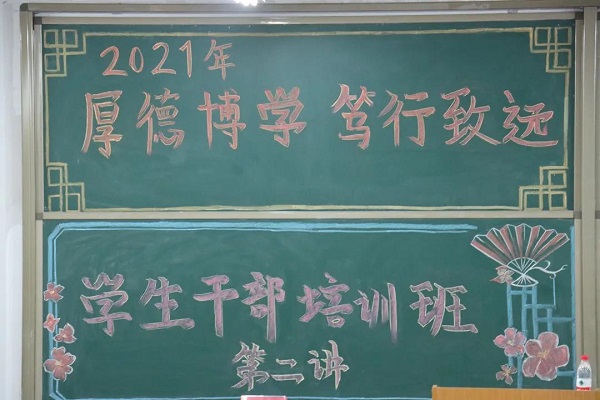 2021年
厚德博学 笃行致远
学生干部培训班
第二讲